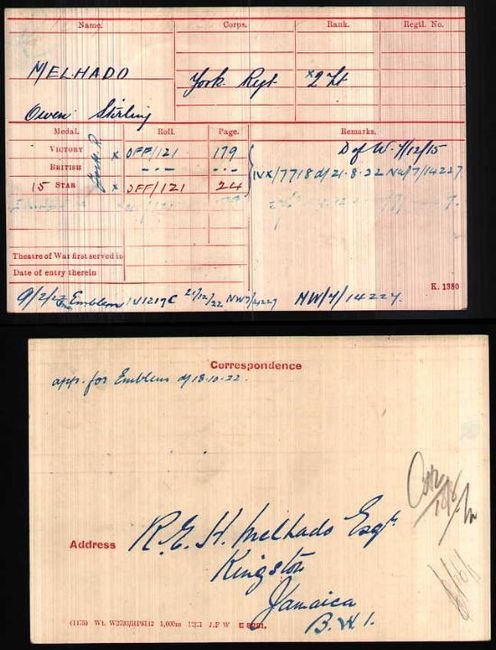 Name. Corps. Rank. Regtl. No.
MELHADO York Regt x2/Lt
Owen Stirling
Medal. Roll. Page. Remarks.
VICTORY x OFF/121 179 D of W. 7/12/15
BRITISH -- · -- - - - IVX/7718 d/21.8.22 NW/7/14227.
15 STAR x OFF/121 24
Theatre of War first served in
Date of entry therein
K. 1380
9/2/22 Emblem IV1217C 21/12/22 NW7/14227 NW/7/14227.
Correspondence
app. for Emblem d/18-10-22.
Address R. E. H. Melhado Esqr
Kingston
Jamaica
B.W.I.